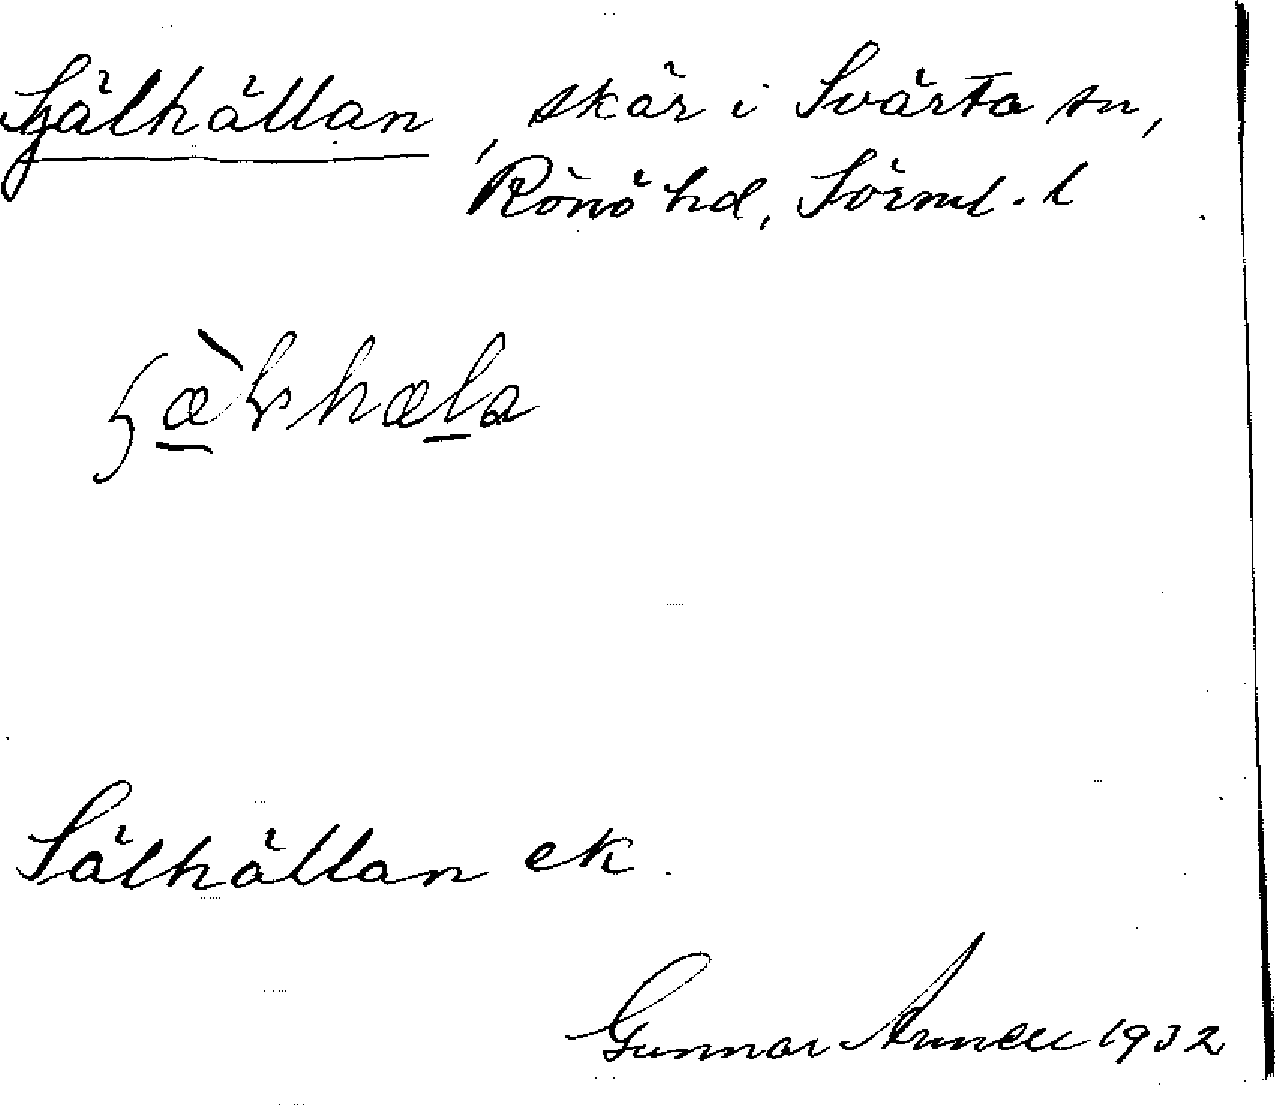 Själhällan, skär i Svärta sn,
Rönö hd, Sörml. l
Sälhällan ek.
Gunnar Arnell 1932